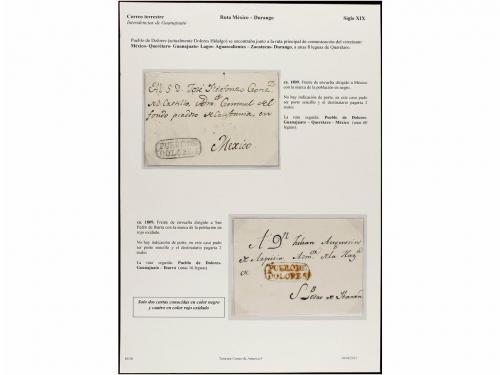 Correo terrestre Ruta México - Durango Siglo XIX
Intendencias de Guanajuato
Pueblo de Dolores (actualmente Dolores Hidalgo) se encontraba junto a la ruta principal de comunicación del virreinato:
México- Querétaro- Guanajuato- Lagos- Aguascalientes - Zacatecas- Durango, a unas 8 leguas de Querétaro.
ca. 1809. Frente de envuelta dirigido a México
con la marca de la población en negro.
No hay indicación de porte, en este caso pudo
ser porte sencillo y el destinatario pagaría 2
reales
La ruta seguida: Pueblo de Dolores-
Guanajuato - Querétaro - México (unas 60
leguas).
Al S D. José Ildefonso
del Castillo, Admr General del
fondo piadoso de California, en
Mexico.
PUEBLO DE
DOLORES
ca. 1809. Frente de envuelta dirigido a San
Pedro de Ibarra con la marca de la población en
rojo oxidado.
No hay indicación de porte, en este caso pudo
ser porte sencillo y el destinatario pagaría 2
reales
La ruta seguida: Pueblo de Dolores-
Guanajuato - Ibarra (unas 16 leguas).
A Dn
de
PUEBLO DE
DOLORES
Solo dos cartas conocidas en color negro
y cuatro en color rojo oxidado